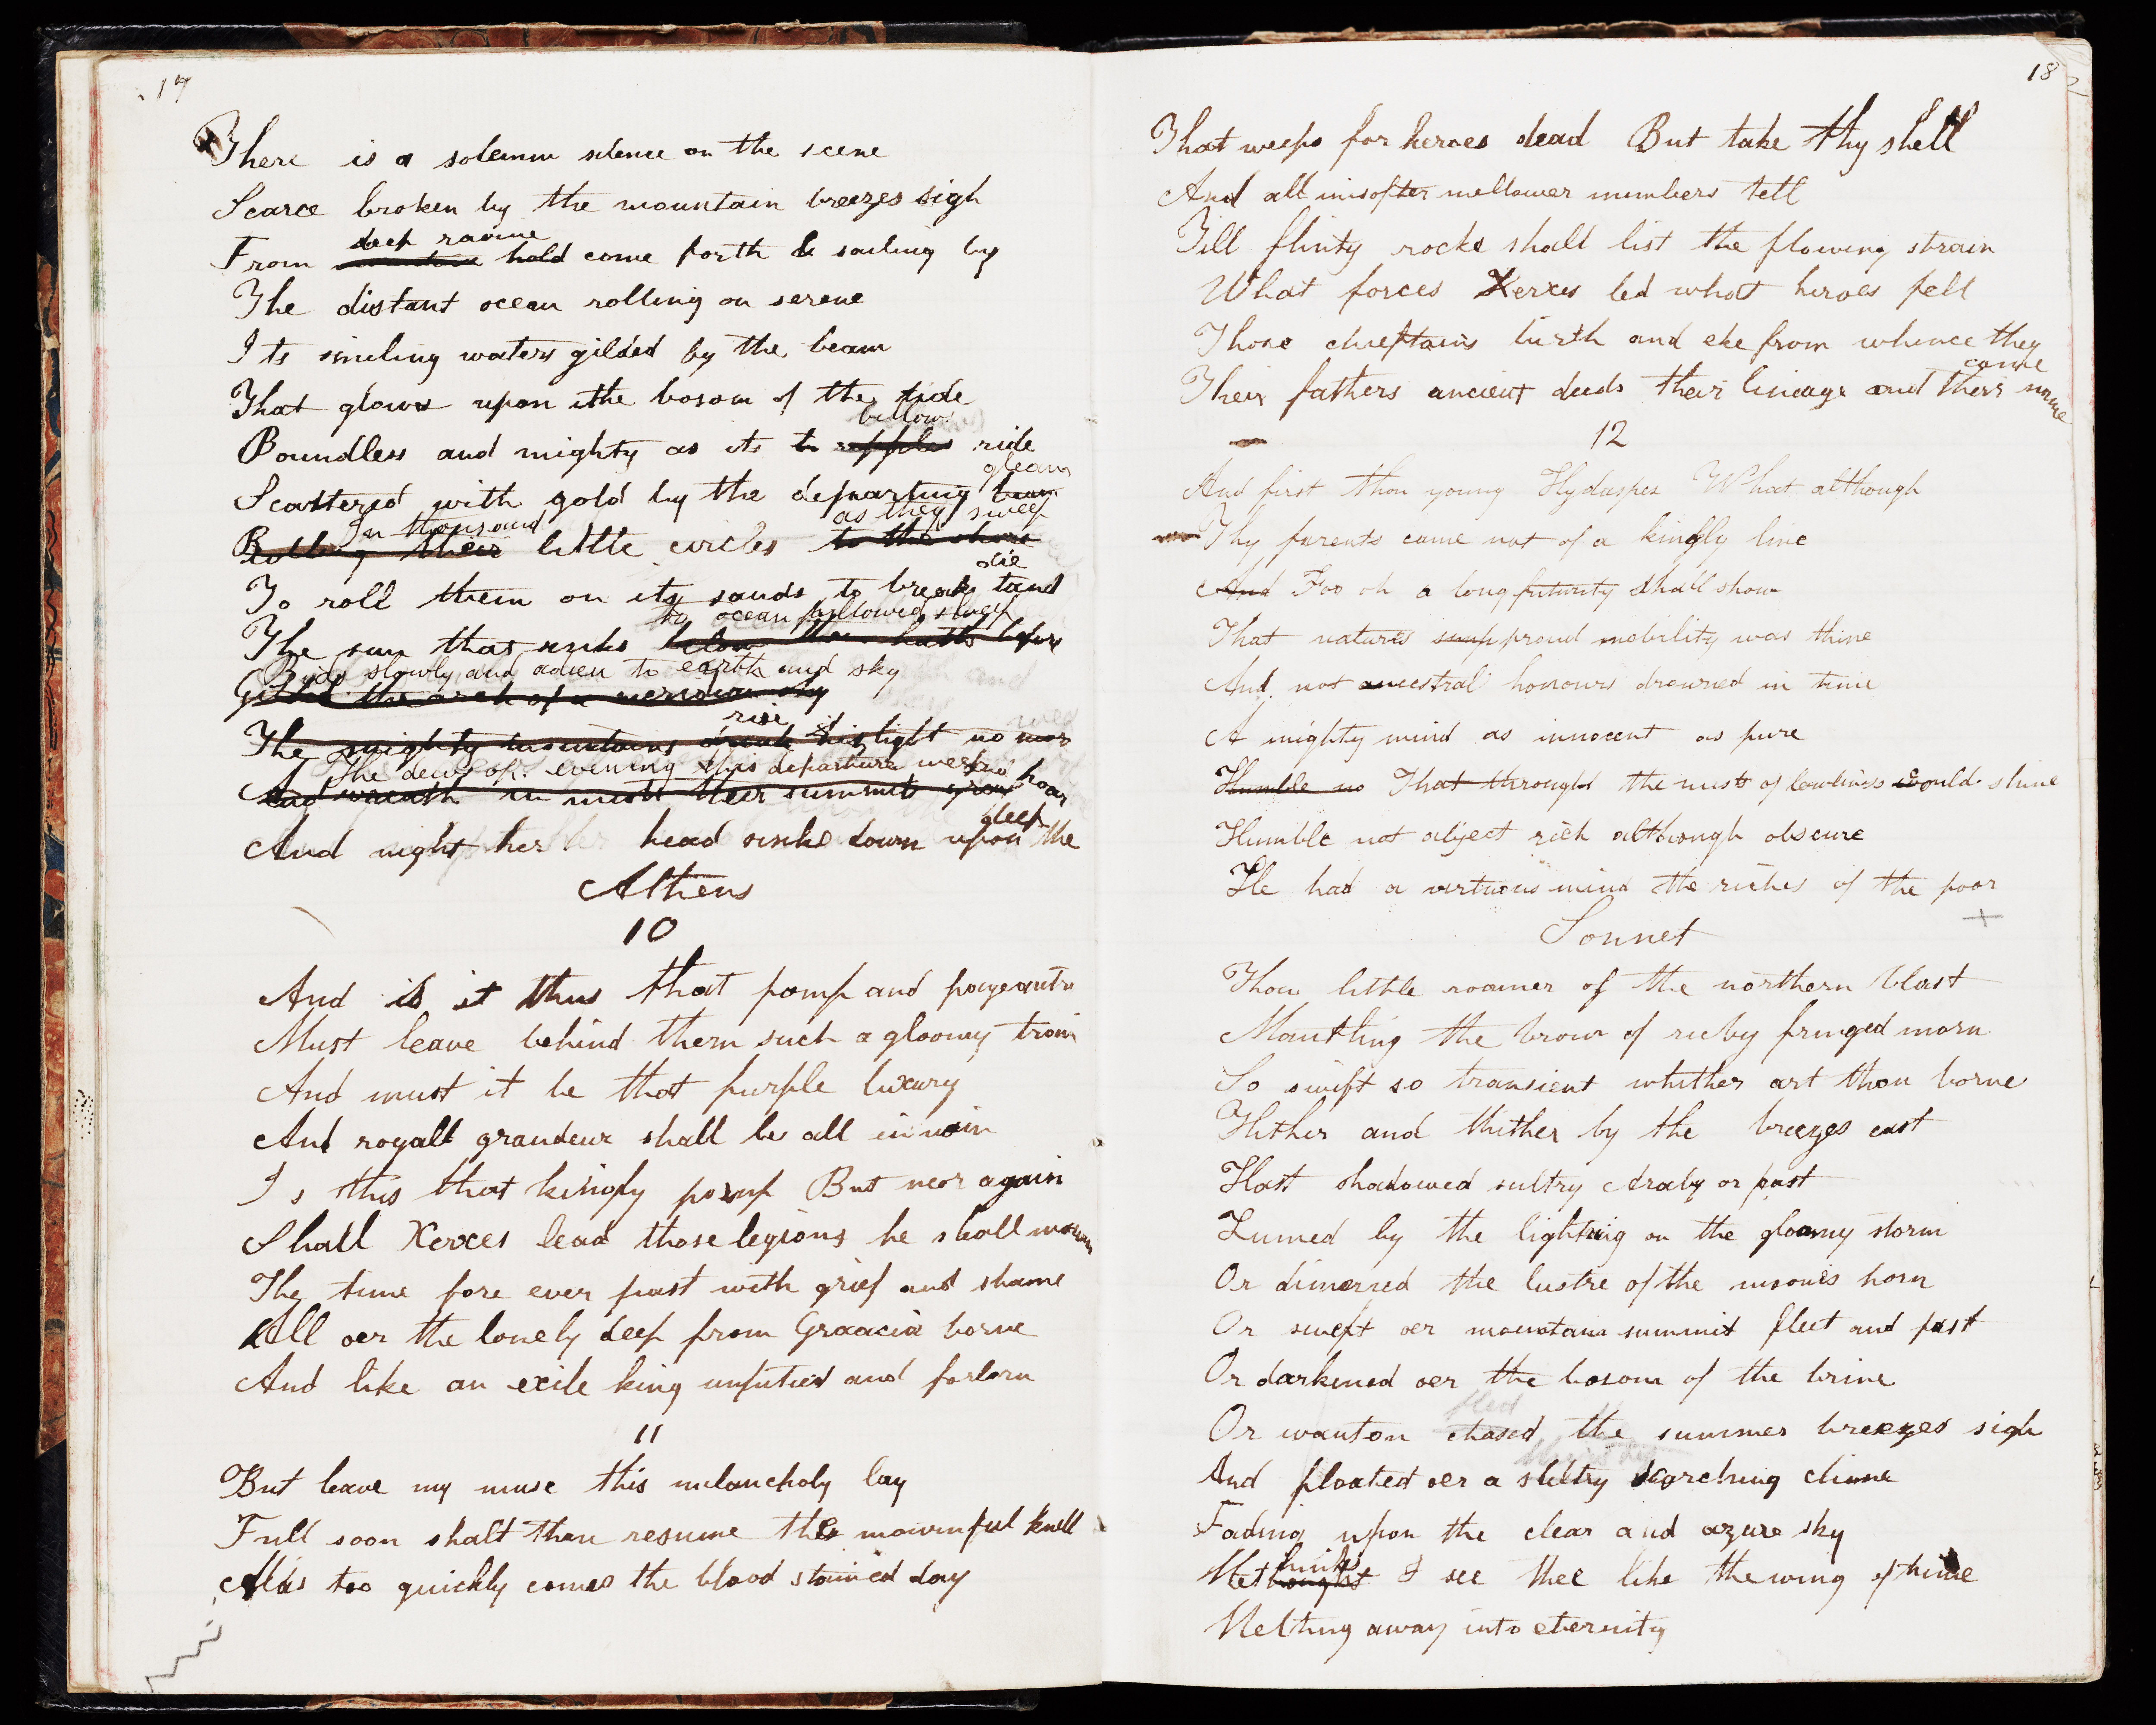 17
There is a solemn silence on the scene
Scarce broken by the mountain breezes sigh
deep ravine
From hold come forth & sailing by
The distant ocean rolling on serene
Its smiling waters gilded by the beam
That glows upon the bosom of the tide
billows
Boundless and mighty as its to ripples ride
gleam
Scattered with gold by the departing beam
In thousand as they sweep
Rolling their little circles to the shore
die
To roll them on its sands to break and
to ocean pillowed sleep
The sun that sinks below
Bids slowly and adieu to earth and sky
Gilded the arch of a meridian sky
rise
The mighty mountains drink his light no more
The dews of evening his departure weep
And wreath in mists their summits grown hoar
deep
And night her head sinks down upon the
Athens
10
And is it thus that pomp and pageantry
Must leave behind them such a gloomy train
And must it be that purple luxury
And royall grandeur shall be all in vain
Is this that kingly pomp But neer again
Shall Xerxes lead those legions he shall mourn
The time fore ever past with grief and shame
All oer the lonely deep from Graacia borne
And like an exile king unpitied and forlorn
11
But leave my muse this melancholy lay
Full soon shalt thou resume the mournful knell
Alas too quickly comes the blood stained day
18
That weeps for heroes dead But take thy shell
And all in softer mellower numbers tell
Till flinty rocks shall list the flowing strain
What forces Xerxes led what heroes fell
Those chieftains birth and eke from whence they
came
Their fathers ancient deeds their lineage and their name
12
And first thou young Hydaspes What although
Thy parents came not of a kingly line
And Foo oh a long futurity shall show
That natures proud nobility was thine
And not ancestral honours drowned in time
A mighty mind as innocent as pure
Humble no That through the mists of lowliness would shine
Humble not abject rich although obscure
He had a virtuous mind the riches of the poor
Sonnet
Thou little roamer of the northern blast
Mantling the brow of ruby fringed morn
So swift so transient whither art thou borne
Hither and thither by the breezes cast
Hast shadowed sultry Araby or past
Lumed by the lightning on the gloomy storm
Or dimmed the lustre of the moones horn
Or swept oer mountain summit fleet and fast
Or darkened oer the bosom of the brine
fled
Or wanton chased the summer breezes sigh
And floated oer a sultry scorching clime
Fading upon the clear and azure sky
thinks
Methought I see thee like the wing of time
Melting away into eternity